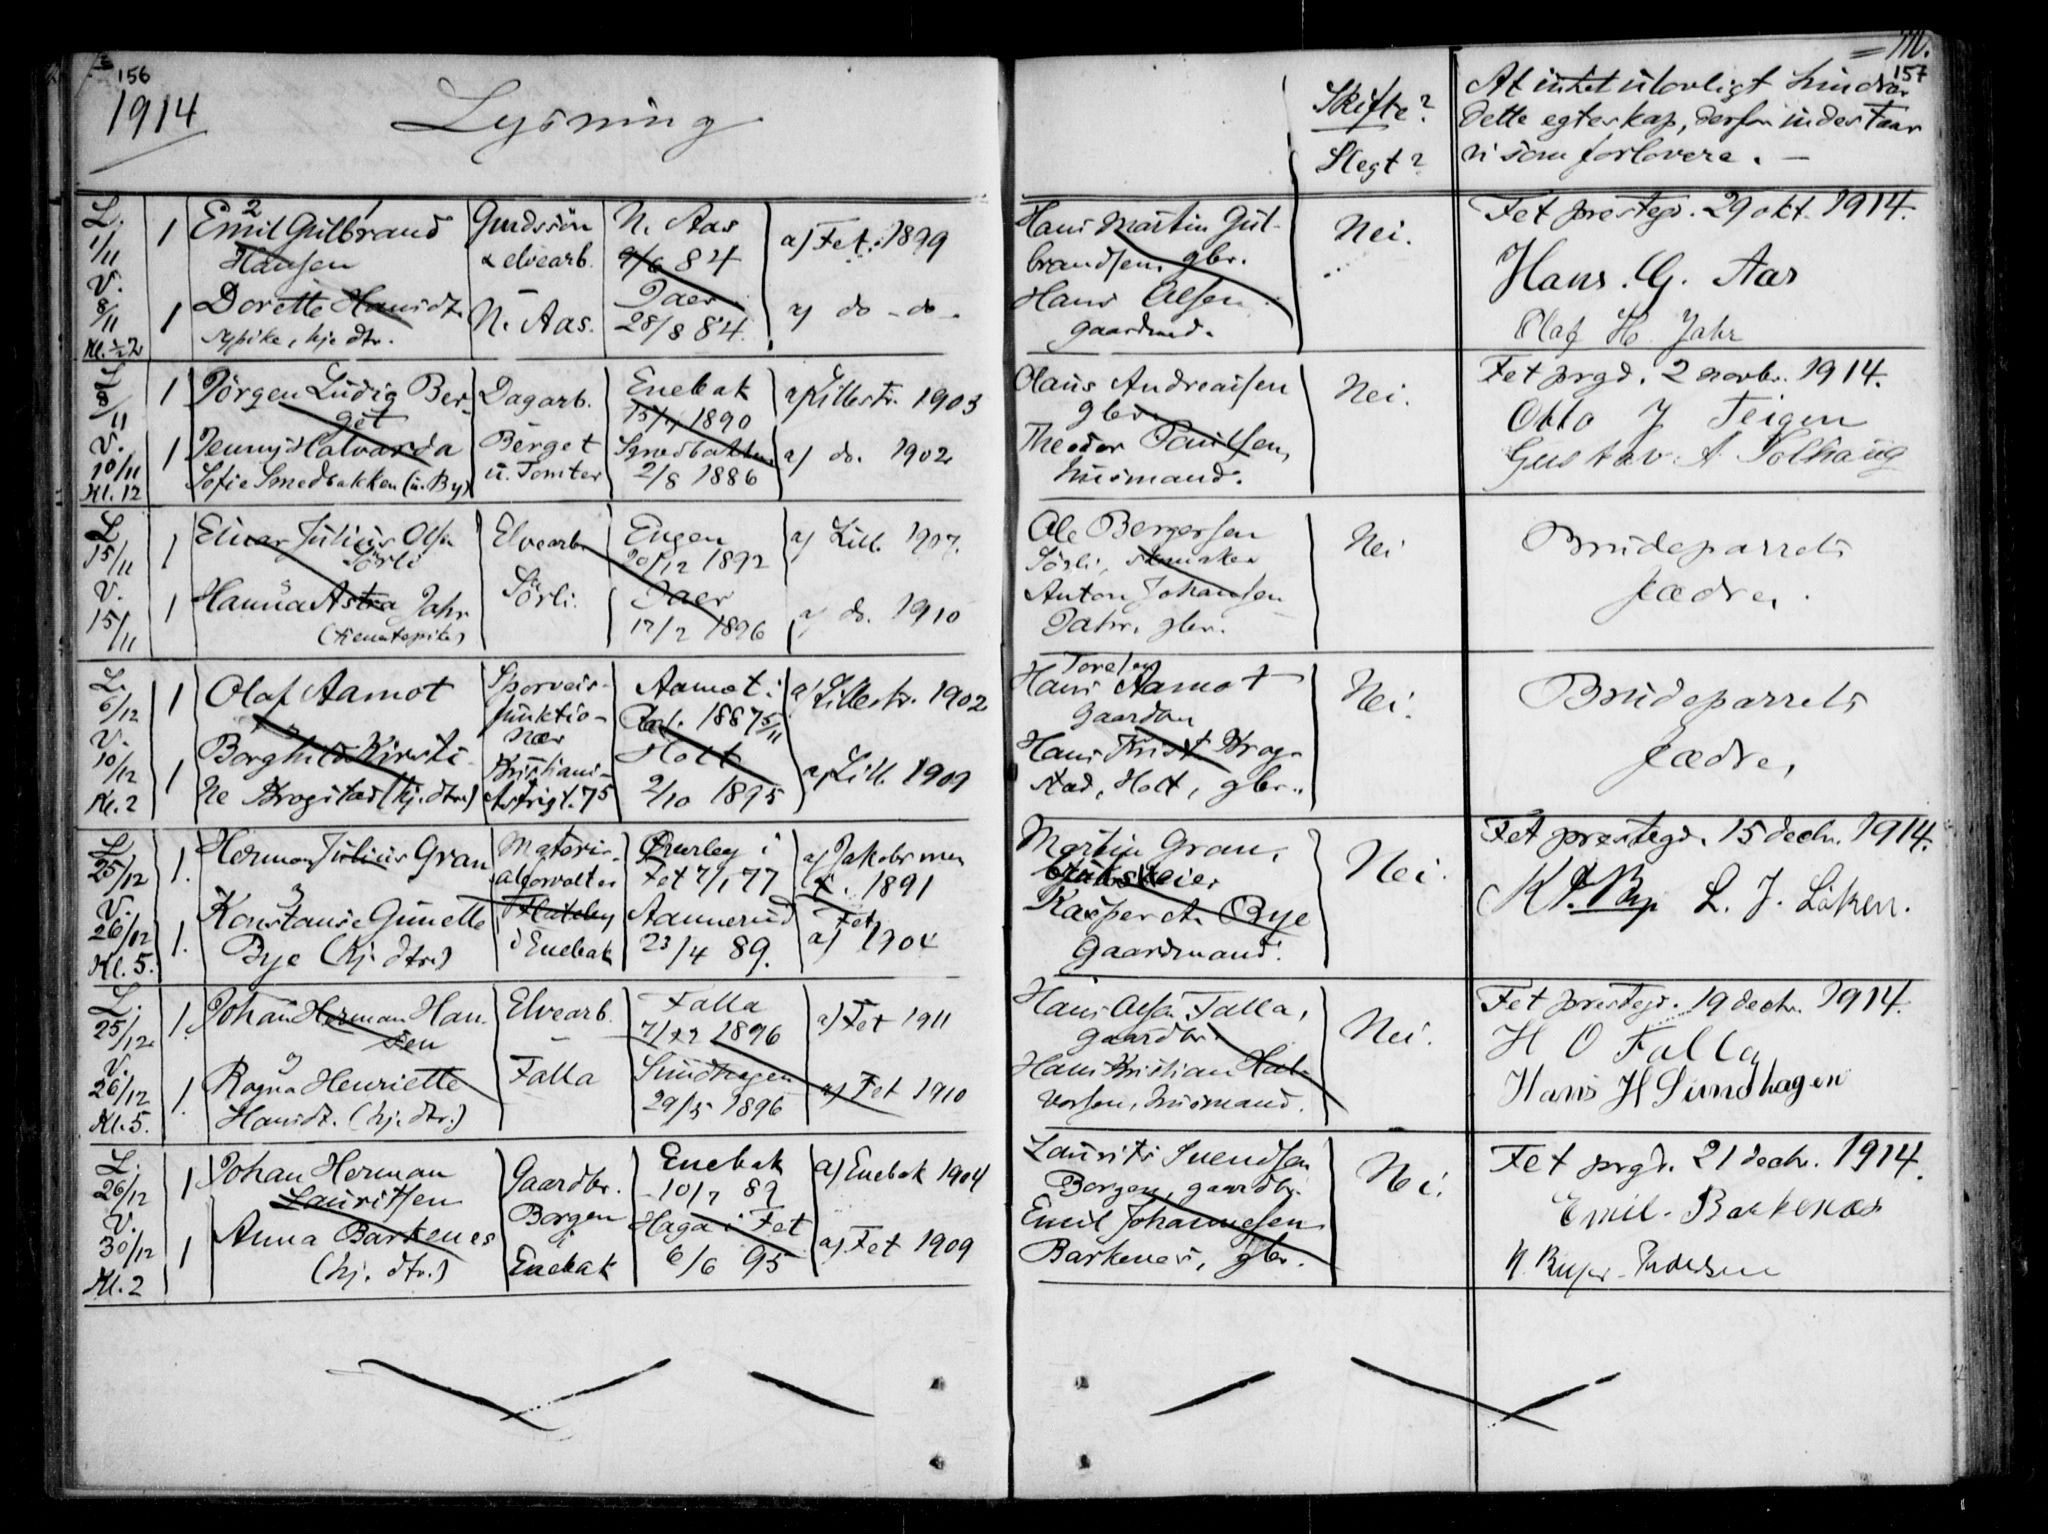 156
1914
Lysning
Skifte?
Slegt?
157
At intet ulovligt hindrer
dette egteskap, derfor indestaar
vi som forlovere. —
L. 1/11
V. 8/11
Kl. ½2
1 Emil Gulbrand
Hansen
Gudssön
& elvearb.
N. Aas
9/6 84
a) Fet. 1899
1 Dorette Hansdt.
sypike, hje. dtr.
N. Aas.
Jaer
28/8 84.
a) do - do -
Hans Martin Gul-
brandsen, gbr.
Hans Olsen
gaardmd.
Nei.
Fet prestegd. 29 okt. 1914.
Hans. G. Aas
Olaf H. Jahr
L. 8/11
V. 10/11
Kl. 12
1 Jörgen Ludig Ber-
get
Dagarb.
Berget
u. Tomter
Enebak
15/7 1890
a) Lillestr. 1903
1 Jenny Halvarda
Sofie Smedbakken (u. By)
Smedbakken
2/8 1886
a) do. 1902
Olaus Andreassen
gbr.
Theodor Paulsen,
husmand.
Nei.
Fet prgd. 2 novbr. 1914.
Otto J Teigen
Gustav A Solhaug
L. 15/11
V. 15/11
1 Einar Julius Olsen
Sörli
Elvearb.
Sörli.
Engen
20/12 1892
a) Lill. 1907.
1 Hanna Astra Jahr
(tjenestepike)
Jaer
17/2 1896
a) do. 1910
Ole Bergersen
Sörli, skomaker
Anton Johansen
Jahr, gbr.
Nei
Brudeparrets
fædre.
L. 6/12
V. 10/12
Kl. 2
1 Olaf Aamot
Sporveis-
funktio-
nær
Kristiani-
Aamot i
1887 5/11
a) Lillestr. 1902
1 Borghild Kirsti-
ne Krogstad (hj. dtr.)
Holt
2/10 1895
a) Lill. 1909
Toresen
Hans Aamot
gaardbr.
Hans Krist. Krog-
stad, Holt, gbr.
Nei.
Brudeparrets
fædre,
L. 25/12
V. 26/12
Kl. 5.
1. Herman Julius Gran
Materi-
alforvalter
Flateby
i Enebak
Fet 7/1 77
a) Jakobs men.
1891
1. Konstanse Gunette
Bye (hj. dtr.)
Aannerud
23/4 89.
Fet
a) 1904
Martin Gran,
Kasper A. Bye
Gaardmand.
Nei.
Fet prestegd. 15 decbr. 1914.
K A. Bye L. J. Löken.
L. 25/12
V. 26/12
Kl. 5.
1. Johan Herman Han-
sen
Elvearb.
—
Falla
Falla
7/12 1896
a) Fet 1911
1. Ragna Henriette
Hansdt. (hj. dtr.)
Sundhagen
29/5 1896
a) Fet 1910
Hans Olsen Falla,
gaardbr.
Hans Kristian Hal-
vorsen, husmand.
Nei.
Fet prestegd. 19 decbr. 1914.
H O Falla
Hans H Sundhagen
L. 26/12
V. 30/12
Kl. 2
1 Johan Herman
Lauritsen
Gaardbr.
Borgen
i
Enebak
Enebak
10/7 89
a) Enebak 1904
1 Anna Barkenes
(hj. dtr.)
Haga i Fet
6/6 95
a) Fet 1909
Laurits Svendsen
Borgen, gaardbr.
Emil Johannesen
Barkenes, gbr.
Nei.
Fet prgd. 21 decbr. 1914.
Emil. Barkenæs